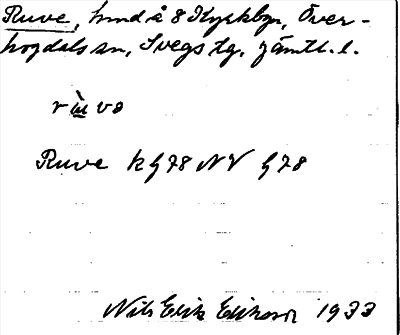 Ruve, hmd å 8 Kyrkbyn, Över-
hogdals sn, Svegs tg, Jämtl. l.
Ruve kg 78 NV g 78
Nils Erik Erikson 1933